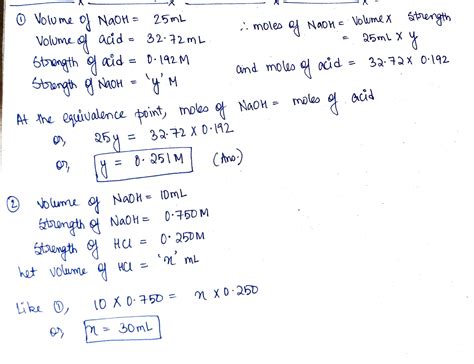 ① Volume of NaOH = 25mL
Volume of acid = 32.72mL
Strength of acid = 0.192M
Strength of NaOH = 'y' M
∴ moles of NaOH = Volume x Strength
= 25mL x y
and moles of acid = 32.72 x 0.192
At the equivalence point, moles of NaOH = moles of acid
or, 25y = 32.72 x 0.192
or, y = 0.251M (Ans.)
② Volume of NaOH = 10mL
Strength of NaOH = 0.750M
Strength of HCl = 0.250M
Let volume of HCl = 'x' mL
Like ①, 10 x 0.750 = x x 0.250
or, x = 30mL